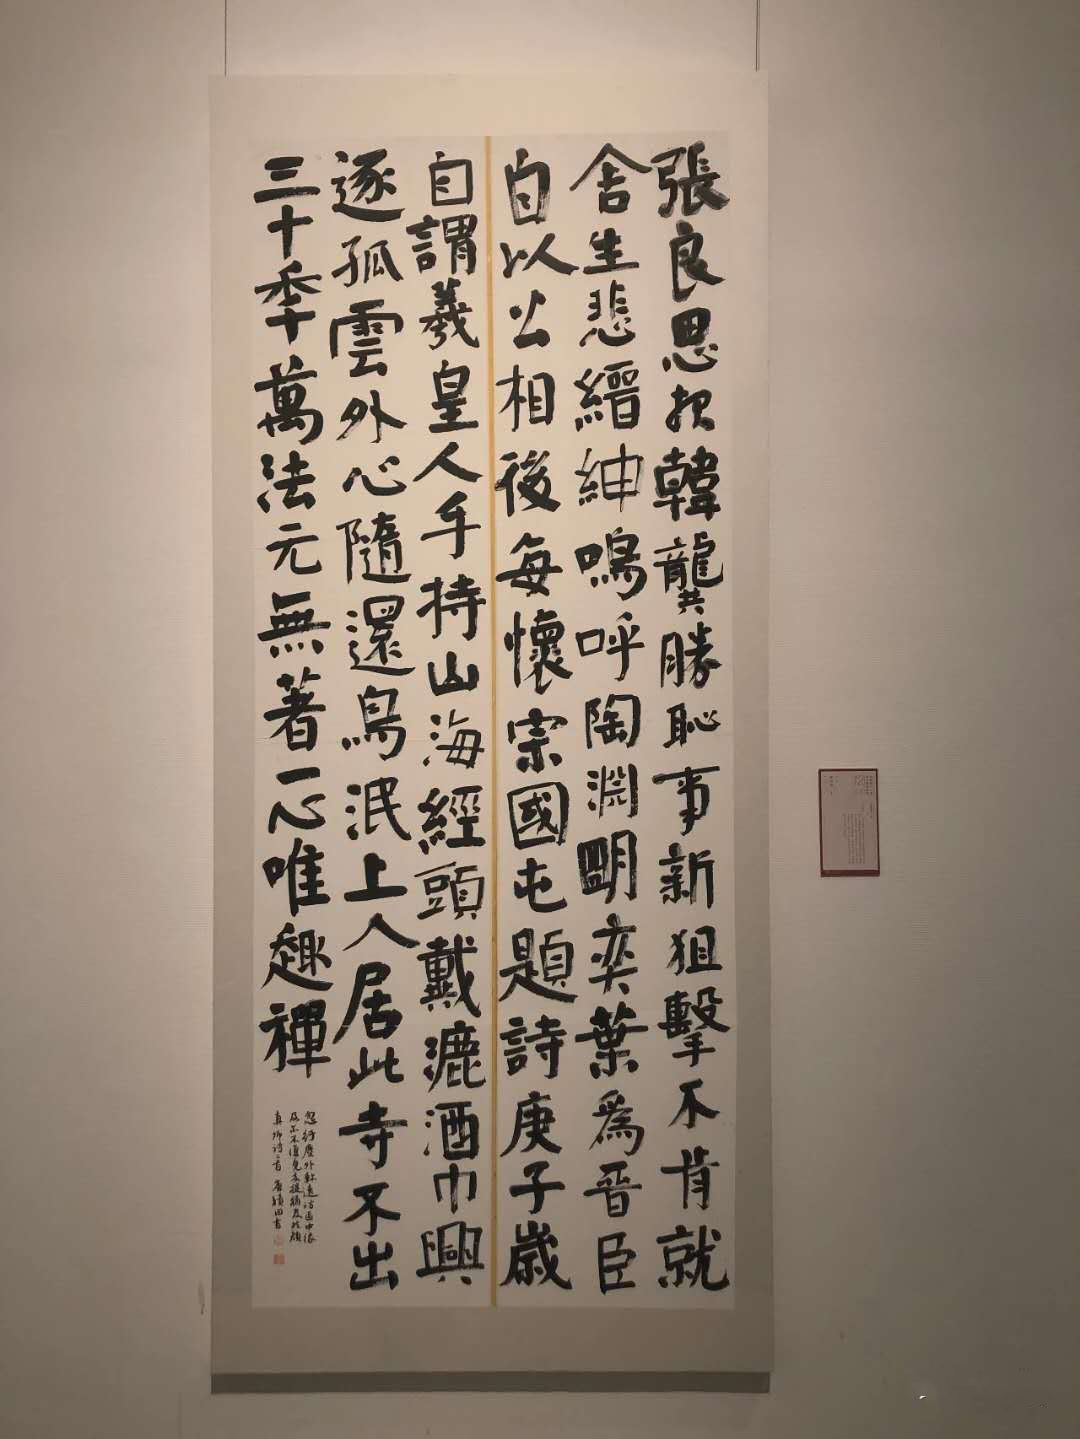 張良思報韓龔勝恥事新狙擊不肯就
舍生悲縉紳嗚呼陶淵明奕葉為晉臣
自以公相後每懷宗國屯題詩庚子歲
自謂羲皇人手持山海經頭戴漉酒巾興
逐孤雲外心隨還鳥泯上人居此寺不出
三十季萬法元無著一心唯趣禪
忽行塵外
真卿詩二首